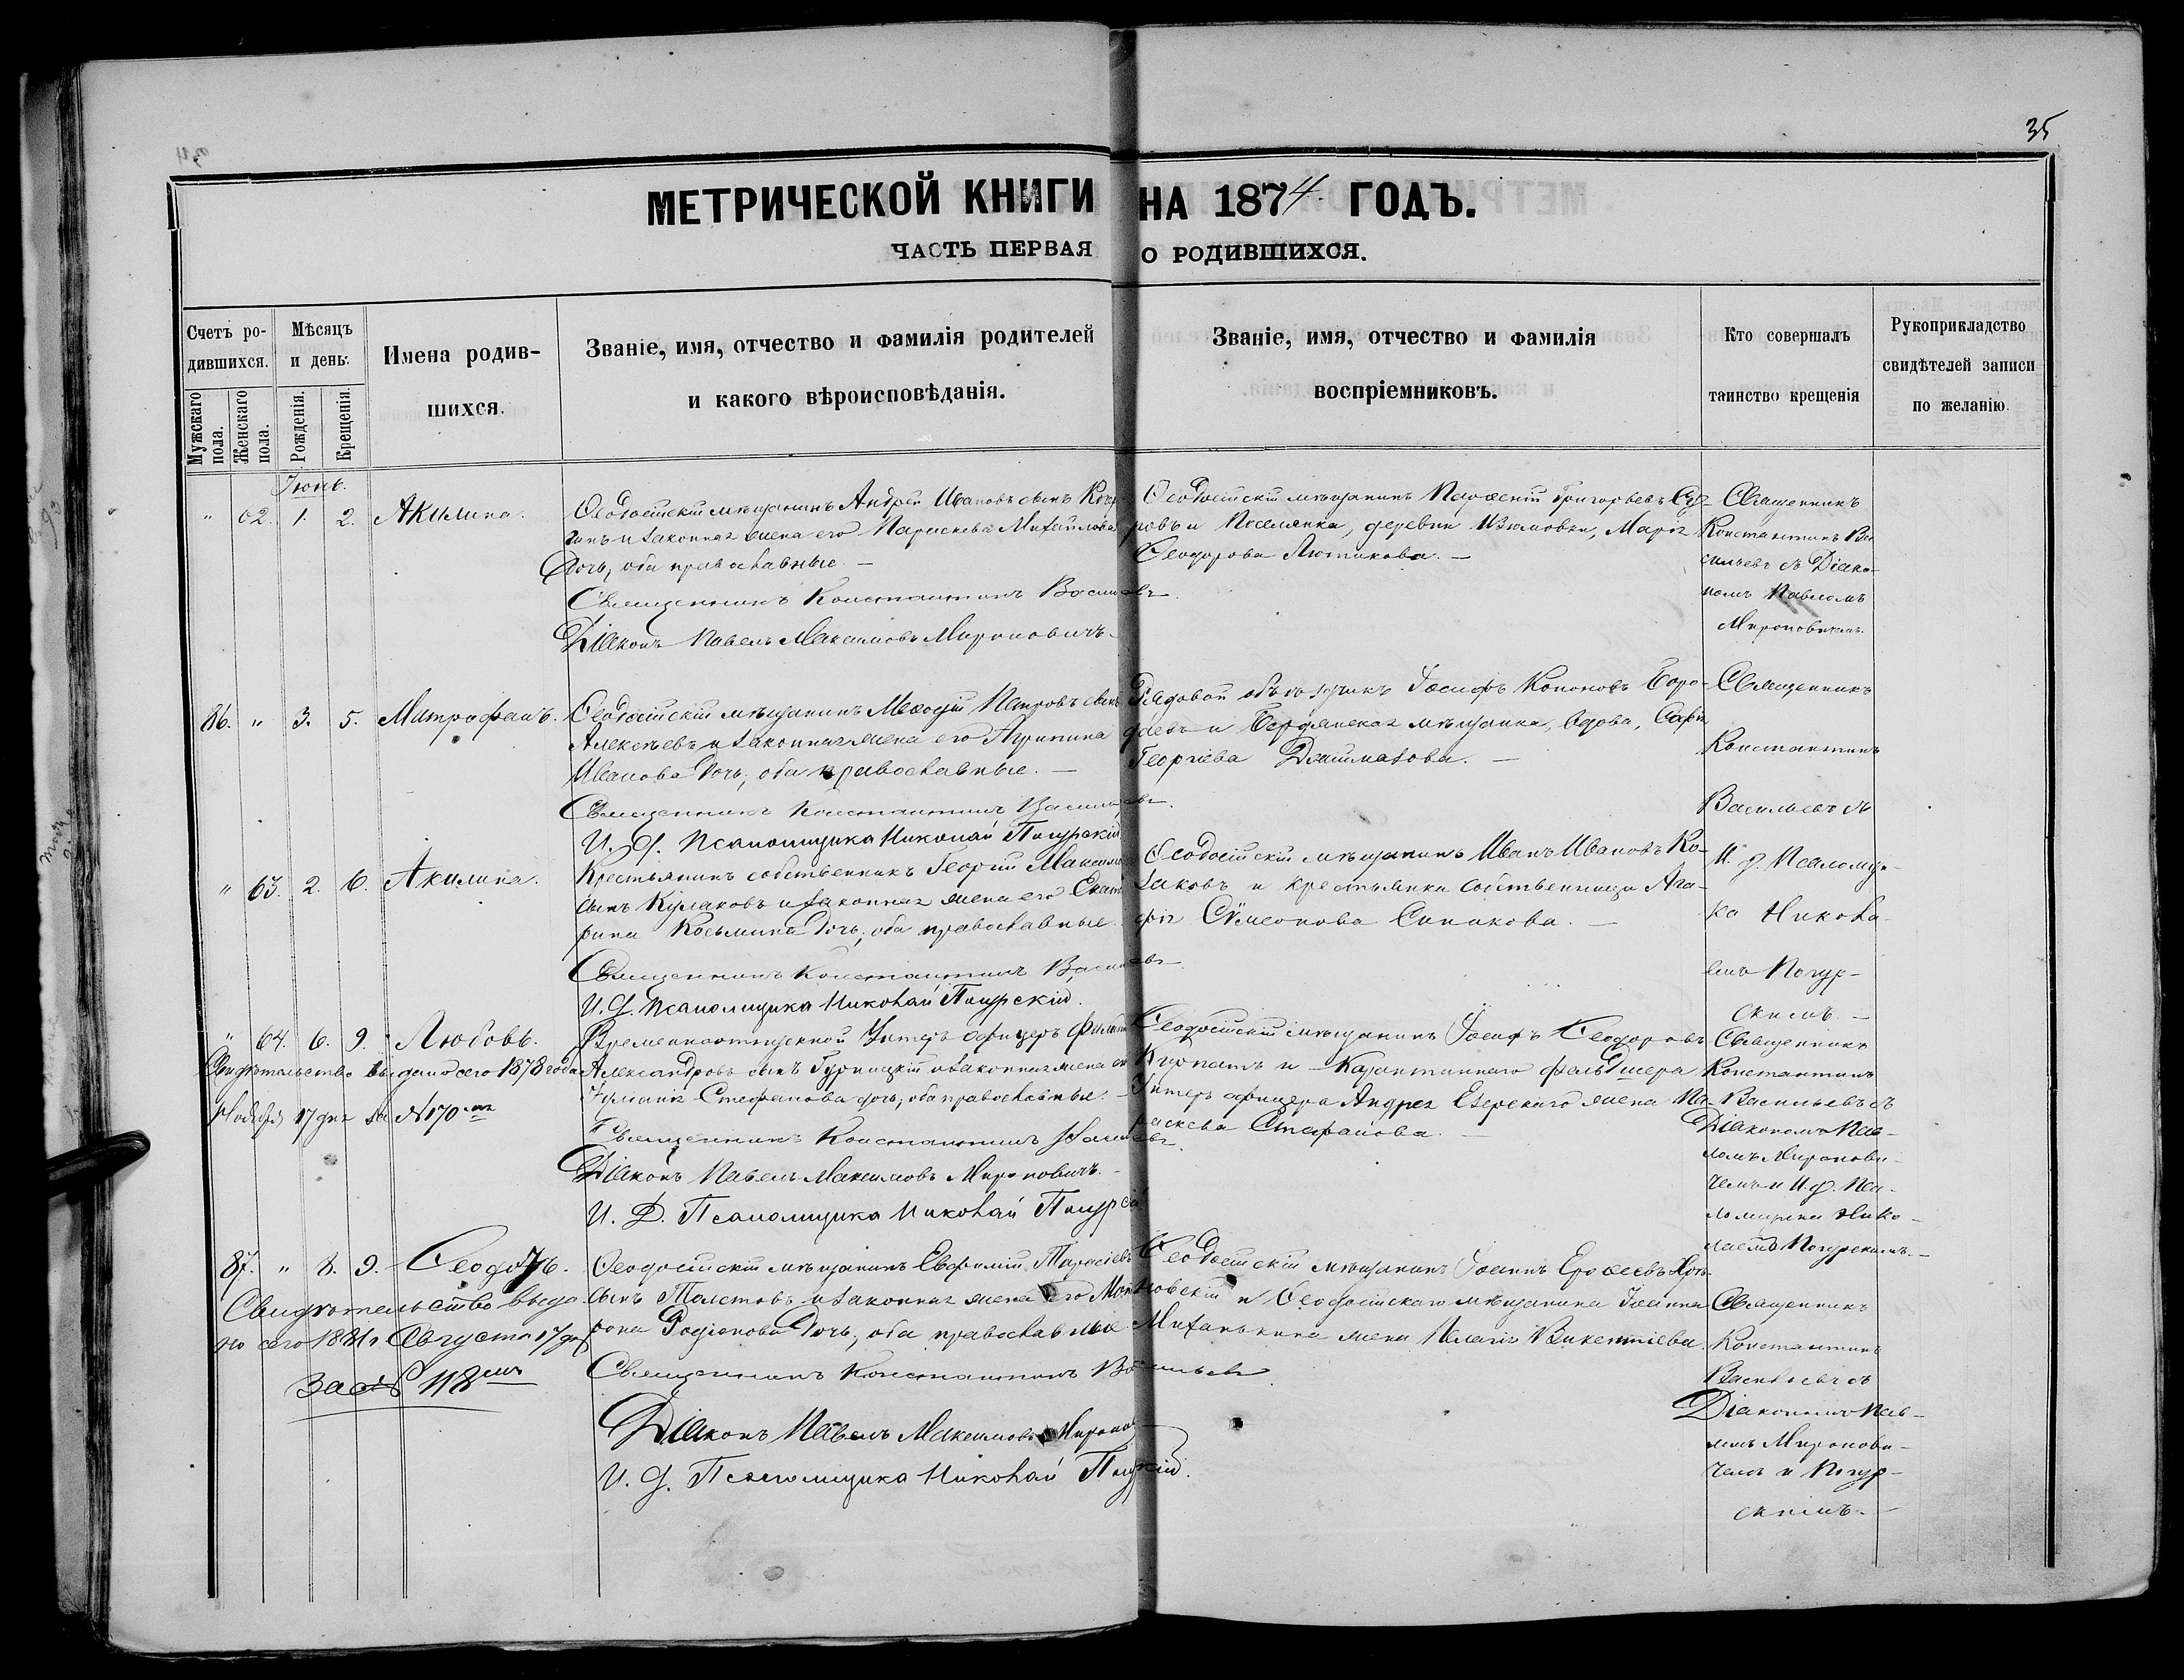 35
МЕТРИЧЕСКОЙ КНИГИ НА 1874 ГОДЪ.
ЧАСТЬ ПЕРВАЯ О РОДИВШИХСЯ.
Счетъ родившихся.
Мужскаго пола.
Женскаго пола.
Мѣсяцъ и день.
Рожденія.
Крещенія.
Имена родившихся.
Званіе, имя, отчество и фамилія родителей
и какого вѣроисповѣданія.
Званіе, имя, отчество и фамилія
воспріемниковъ.
Кто совершалъ
таинство крещенія
Рукоприкладство
свидѣтелей записи
по желанію.
Іюнь.
" 62. 1. 2. Акилина.
Ѳеодосійскій мѣщанинъ Андрей Ивановъ сынъ
и законная жена его Параскева Михайлова
дочь, оба православные. —
Священникъ Константинъ Васильевъ.
Діаконъ Павелъ Максимовъ Мироновичъ.
Ѳеодосійскій мѣщанинъ Парѳеній Григорьевъ
и Поселянка, деревни Изюмовки, Марія
Ѳеодорова Лютикова. —
Священникъ
Константинъ Ва-
сильевъ съ Діако-
номъ Павломъ
Мироновичемъ.
86. " 3. 5. Митрофанъ.
Ѳеодосійскій мѣщанинъ Меѳодій Петровъ сынъ
Алексѣевъ и законная жена его Агрипина
Иванова дочь, оба православные. —
Священникъ Константинъ Васильевъ.
И. д. Псаломщика Николай Погурскій
Рядовой объѣздчикъ Іосифъ Кононовъ Боро-
даевъ и Бердянская мѣщанка, вдова, Софія
Георгіева —
Священникъ
Константинъ
Васильевъ съ
И. д. Псаломщи-
ка Никола-
емъ Погур-
скимъ. —
" 63. 2. 6. Акилина.
Крестьянинъ собственникъ Георгій Максимовъ
сынъ Кулаковъ и законная жена его Екате-
рина Косьмина дочь, оба православные.
Священникъ Константинъ Васильевъ
И. д. Псаломщика Николай Погурскій.
Ѳеодосійскій мѣщанинъ Иванъ Ивановъ Ко-
заковъ и крестьянки собственницы Ага-
фія Сѵмеонова Синякова. —
" 64. 6. 9. Любовь.
Свидѣтельство выдано сего 1878 года
Ноября 17 дня за № 170мъ
Временноотпускной Унтеръ офицеръ
Александровъ сынъ Гурницкій и законная жена его
Іуліанія Стефанова дочь, оба православные. —
Священникъ Константинъ Васильевъ.
Діаконъ Павелъ Максимовъ Мироновичъ.
И. Д. Псаломщика Николай Погурскій
Ѳеодосійскій мѣщанинъ Іосифъ Ѳеодоровъ
и Карантиннаго фельдшера
Унтеръ офицера Андрея Езерскаго жена Па-
раскева Стефанова. —
Священникъ
Константинъ
Васильевъ съ
Діакономъ Пав-
ломъ Миронови-
чемъ и И. д. Пса-
ломщика Нико-
лаемъ Погурскимъ. —
87. " 8. 9. Ѳеодотъ.
Свидѣтельство выда-
но сего 1881 г Августа 17 дня
за № 118мъ
Ѳеодосійскій мѣщанинъ Евфимій Тарасіевъ
сынъ Толстовъ и законная жена его Мат-
рона Родіонова дочь, оба православные
Священникъ Константинъ Васильевъ
Діаконъ Павелъ Максимовъ Мироновичъ
И. д. Псаломщика Николай Погурскій.
Ѳеодосійскій мѣщанинъ Іоаннъ Ероѳеевъ
и Ѳеодосійскаго мѣщанина Іоанна
Михалькина жена Пелагія Викентіева.
Священникъ
Константинъ
Васильевъ съ
Діакономъ Пав-
ломъ Миронови-
чемъ и Погур-
скимъ. —